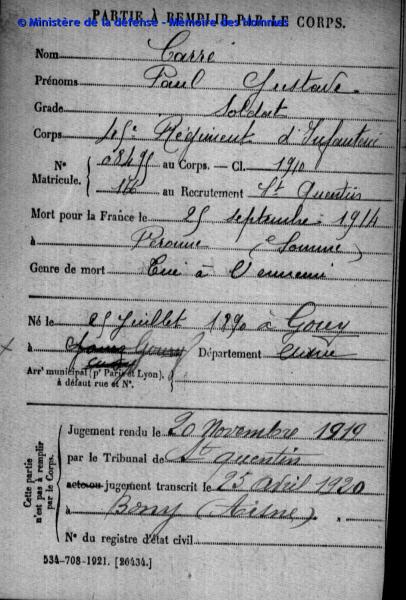 PARTIE À REMPLIR PAR LE CORPS.
© Ministère de la défense - Mémoire des hommes
Nom Carré
Prénoms Paul Gustave
Grade Soldat
Corps 45e Régiment d'Infanterie
N° 08495 au Corps. — Cl. 1910
Matricule. 166 au Recrutement St Quentin
Mort pour la France le 25 septembre 1914
à Péronne (Somme)
Genre de mort Tué à l'ennemi
Né le 25 Juillet 1890 à Gouy
à Département Aisne
Arr' municipal (p' Paris et Lyon),
à défaut rue et N°.
Cette partie n'est pas à remplir par le Corps.
Jugement rendu le 20 Novembre 1919
par le Tribunal de St quentin
acte ou jugement transcrit le 25 avril 1920
à Bony (Aisne)
N° du registre d'état civil
534-708-1921. [26434.]